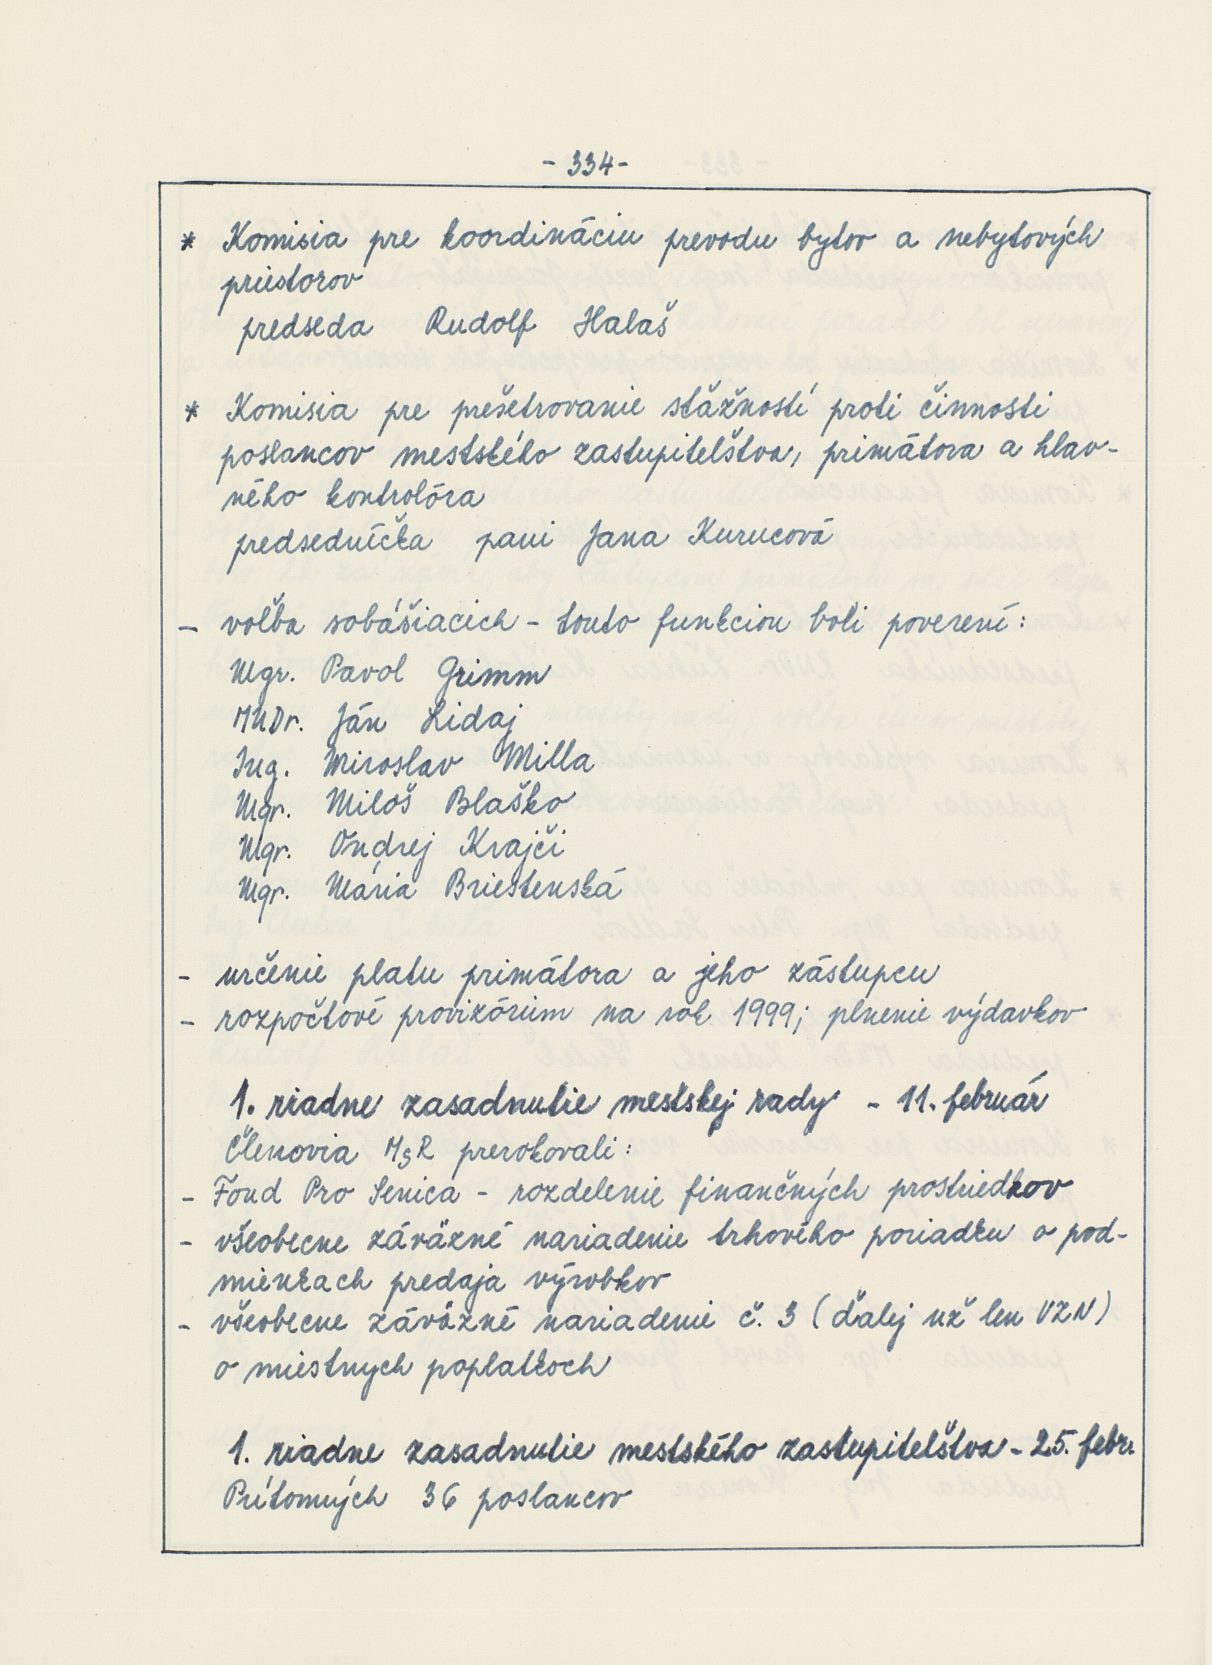 - 334 -
* Komisia pre koordináciu prevodu bytov a nebytových
priestorov
predseda Rudolf Halaš
* Komisia pre prešetrovanie stážností proti činnosti
poslancov mestského zastupiteľstva, primátora a hlav-
ného kontrolóra
predsedníčka pani Jana Kurucová
- voľba sobášiacich - touto funkciou boli poverení:
Mgr. Pavol Grimm
MUDr. Ján Lidaj
Ing. Miroslav Milla
Mgr. Miloš Blaško
Mgr. Ondrej Krajči
Mgr. Mária Briestenská
- určenie platu primátora a jeho zástupcu
- rozpočtové provizórium na rok 1999; plnenie výdavkov
1. riadne zasadnutie mestskej rady - 11. február
Členovia MsR prerokovali:
- Fond Pro Senica - rozdelenie finančných prostriedkov
- všeobecne záväzné nariadenie trhového poriadku o pod-
mienkach predaja výrobkov
- všeobecne záväzné nariadenie č. 3 (ďalej už len VZN)
o miestnych poplatkoch
1. riadne zasadnutie mestského zastupiteľstva - 25. febr.
Prítomných 36 poslancov